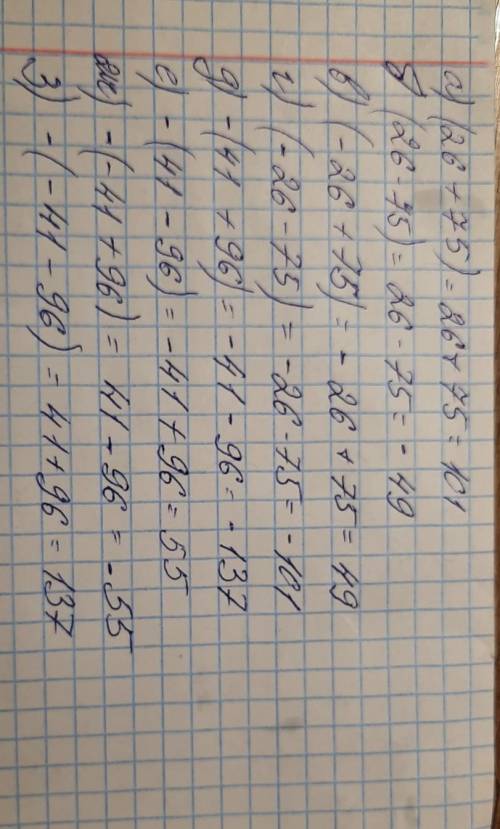 а) (26 + 75) = 26 + 75 = 101
б) (26 - 75) = 26 - 75 = - 49
в) (- 26 + 75) = - 26 + 75 = 49
г) (- 26 - 75) = - 26 - 75 = - 101
д) - (41 + 96) = - 41 - 96 = - 137
е) - (41 - 96) = - 41 + 96 = 55
ж) - (- 41 + 96) = 41 - 96 = - 55
з) - (- 41 - 96) = 41 + 96 = 137